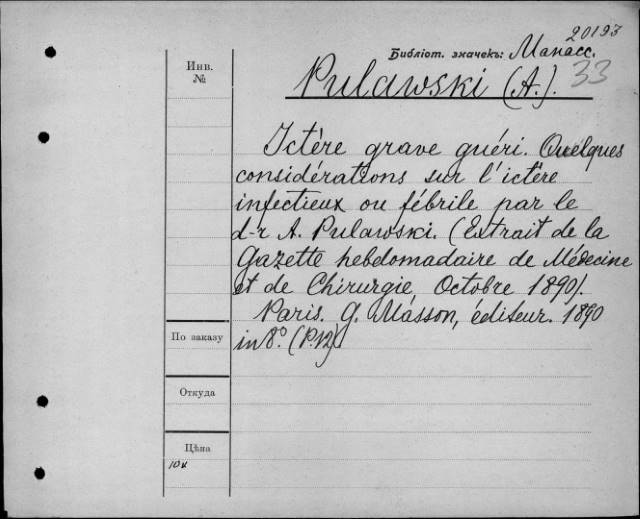 20193
Библіот. значекъ: Манасс.
33
Инв.
№
Pulawski (A.).
Ictère grave guéri. Quelques
considérations sur l'ictère
infectieux ou fébrile par le
d-r A. Pulawski. (Extrait de la
Gazette hebdomadaire de Médecine
et de Chirurgie, Octobre 1890).
Paris. G. Masson, éditeur. 1890
in 8º. (P. 12).
По заказу
Откуда
Цѣна
10 к